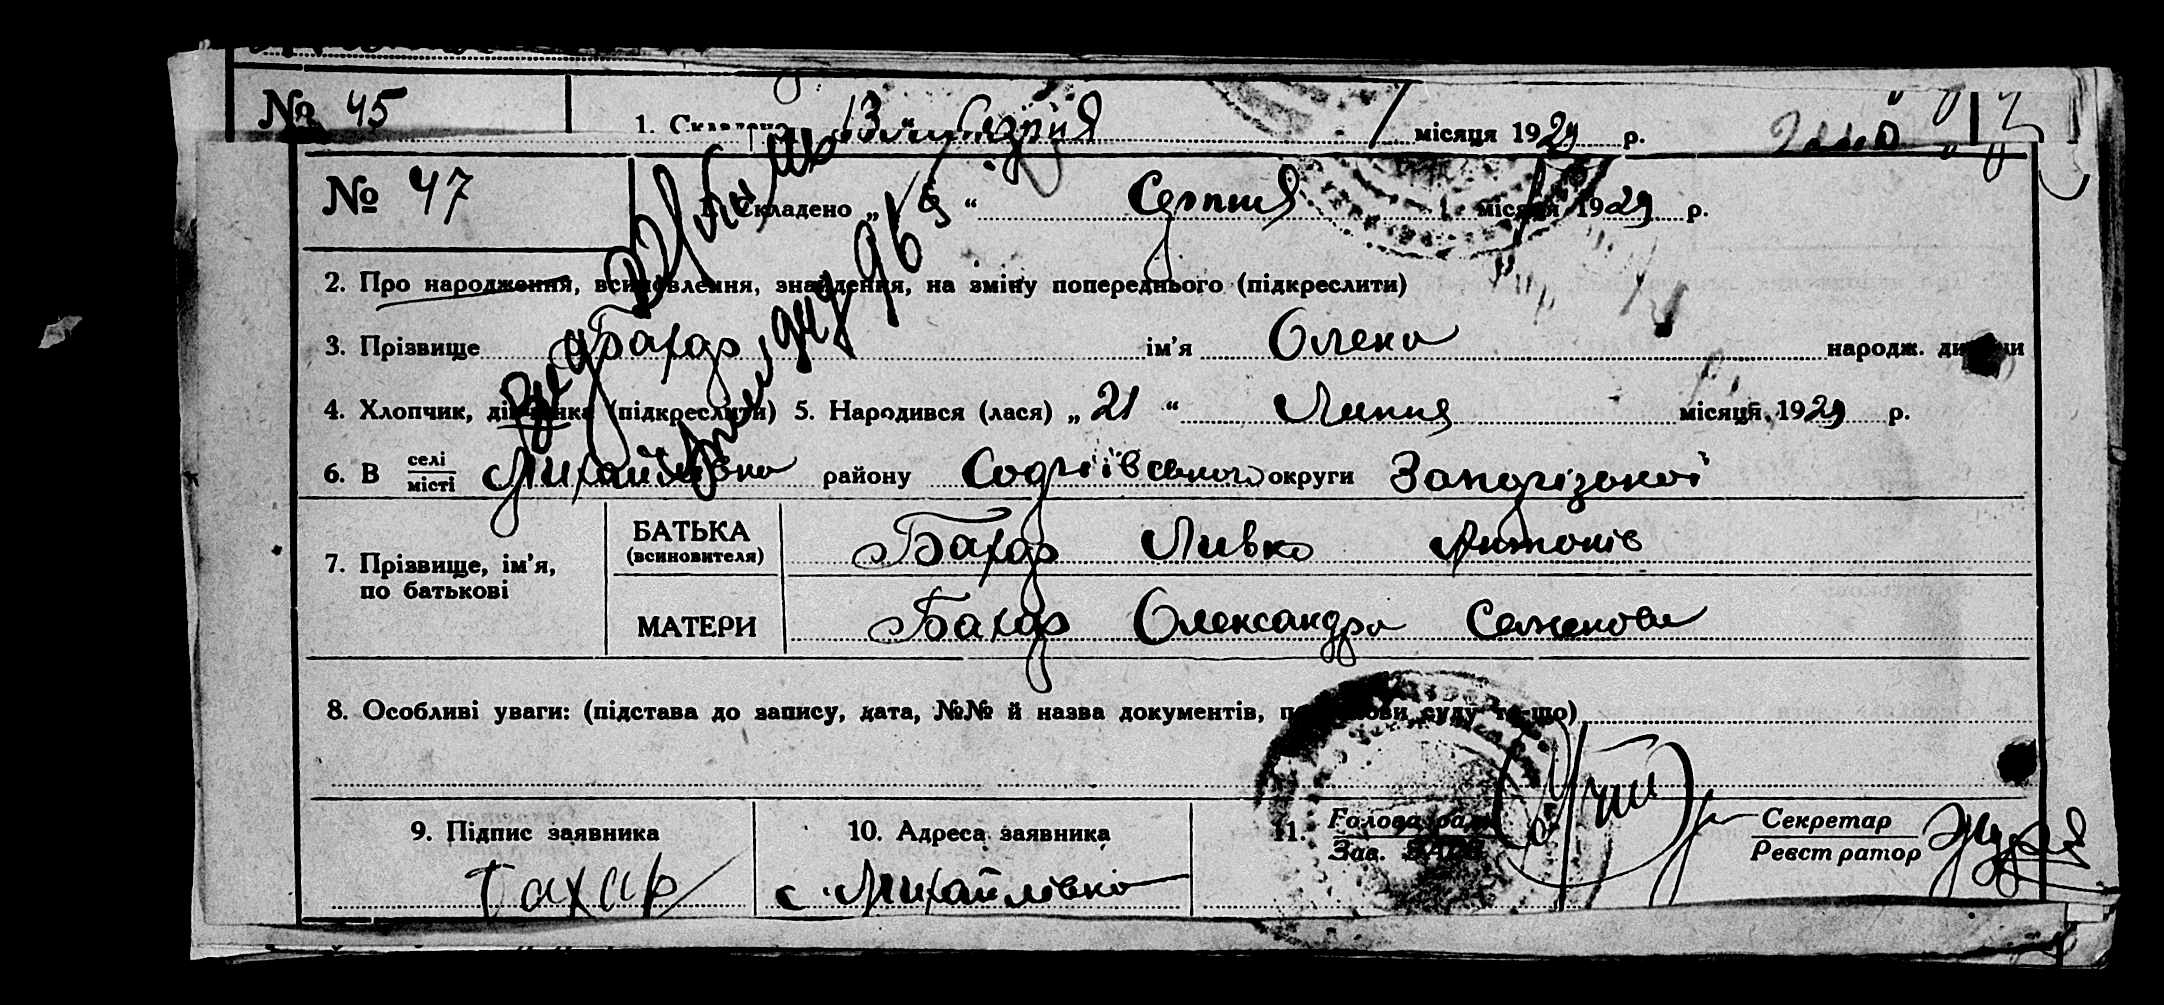 № 45
1. Складено „13“ Серпня місяця 1929 р.
№ 47
1. Складено „ “ Серпня місяця 1929 р.
2. Про народження, всиновлення, знайдення, на зміну попереднього (підкреслити)
3. Прізвище Бахар ім'я Олена народж. дитини
4. Хлопчик, дівчинка (підкреслити) 5. Народився (лася) „21“ Липня місяця 1929 р.
6. В селі/місті Михайлівка району Софіївського округи Запорізької
7. Прізвище, ім'я, по батькові
БАТЬКА (всиновителя) Бахар Ливко Антонів
МАТЕРИ Бахар Олександра Семенова
8. Особливі уваги: (підстава до запису, дата, №№ й назва документів, постанови суду то-що)
9. Підпис заявника
Бахар
10. Адреса заявника
с. Михайлівка
11. Голова ради
Зав. ЗАГС
Секретар
Реєстратор